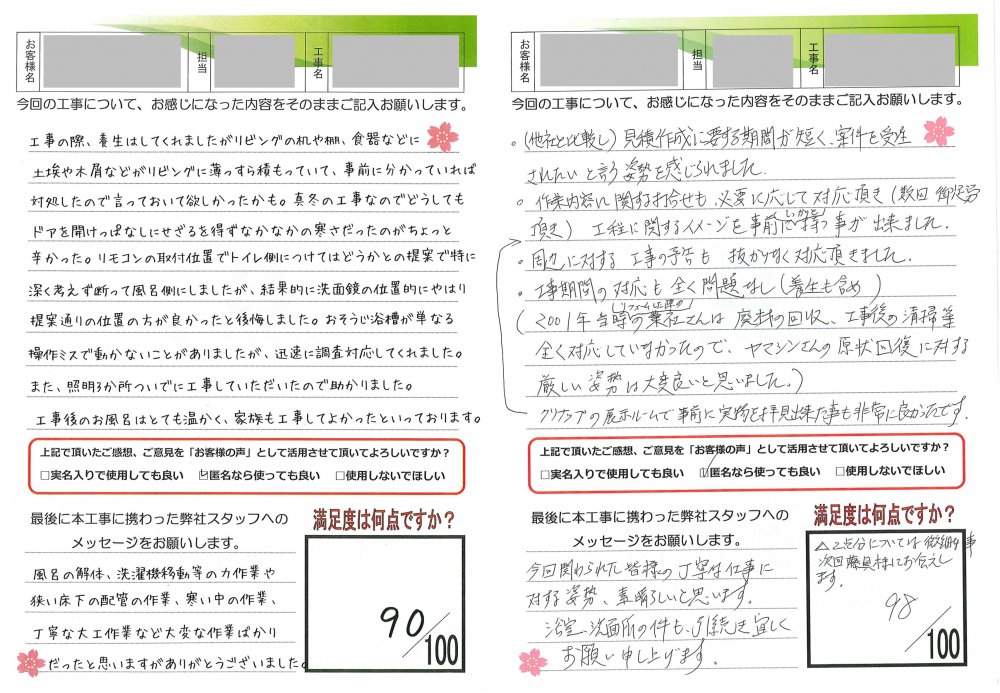 お客様名
担当
工事名
今回の工事について、お感じになった内容をそのままご記入お願いします。
工事の際、養生はしてくれましたがリビングの机や棚、食器などに
土埃や木屑などがリビングに薄っすら積もっていて、事前に分かっていれば
対処したので言っておいて欲しかったかも。真冬の工事なのでどうしても
ドアを開けっぱなしにせざるを得ずなかなかの寒さだったのがちょっと
辛かった。リモコンの取付位置でトイレ側につけてはどうかとの提案で特に
深く考えず断って風呂側にしましたが、結果的に洗面鏡の位置的にやはり
提案通りの位置の方が良かったと後悔しました。おそうじ浴槽が単なる
操作ミスで動かないことがありましたが、迅速に調査対応してくれました。
また、照明3か所ついでに工事していただいたので助かりました。
工事後のお風呂はとても温かく、家族も工事してよかったといっております。
上記で頂いたご感想、ご意見を「お客様の声」として活用させて頂いてよろしいですか?
□実名入りで使用しても良い ☑匿名なら使っても良い □使用しないでほしい
最後に本工事に携わった弊社スタッフへの
メッセージをお願いします。
風呂の解体、洗濯機移動等の力作業や
狭い床下の配管の作業、寒い中の作業、
丁寧な大工作業など大変な作業ばかり
だったと思いますがありがとうございました。
満足度は何点ですか?
90/100
お客様名
担当
工事名
今回の工事について、お感じになった内容をそのままご記入お願いします。
。(他社と比較し)見積作成に要する期間が短く、案件を受注
されたいと言う姿勢を感じられました。
。作業内容に関する打合せも、必要に応じて対応頂き(数回
頂き) 工程に関するイメージを事前に持つ事が出来ました。
。周辺に対する工事の予告も 抜かりなく対応頂きました。
。工事期間の対応も全く問題なし(養生も含め)
(2001年当時の業社さんは廃材の回収、工事後の清掃等
全く対応していなかったので、ヤマシンさんの原状回復に対する
厳しい姿勢は大変良いと思いました。)
クリナップの展示ルームで事前に実物を拝見出来た事も非常に良かったです。
上記で頂いたご感想、ご意見を「お客様の声」として活用させて頂いてよろしいですか?
□実名入りで使用しても良い ☑匿名なら使っても良い □使用しないでほしい
最後に本工事に携わった弊社スタッフへの
メッセージをお願いします。
今回関わられた皆様の丁寧な仕事に
対する姿勢、素晴らしいと思います。
浴室、洗面所の件も、引続き宜しく
お願い申し上げます。
満足度は何点ですか?
△2点分については
次回藤員様にお伝えし
ます。
98/100